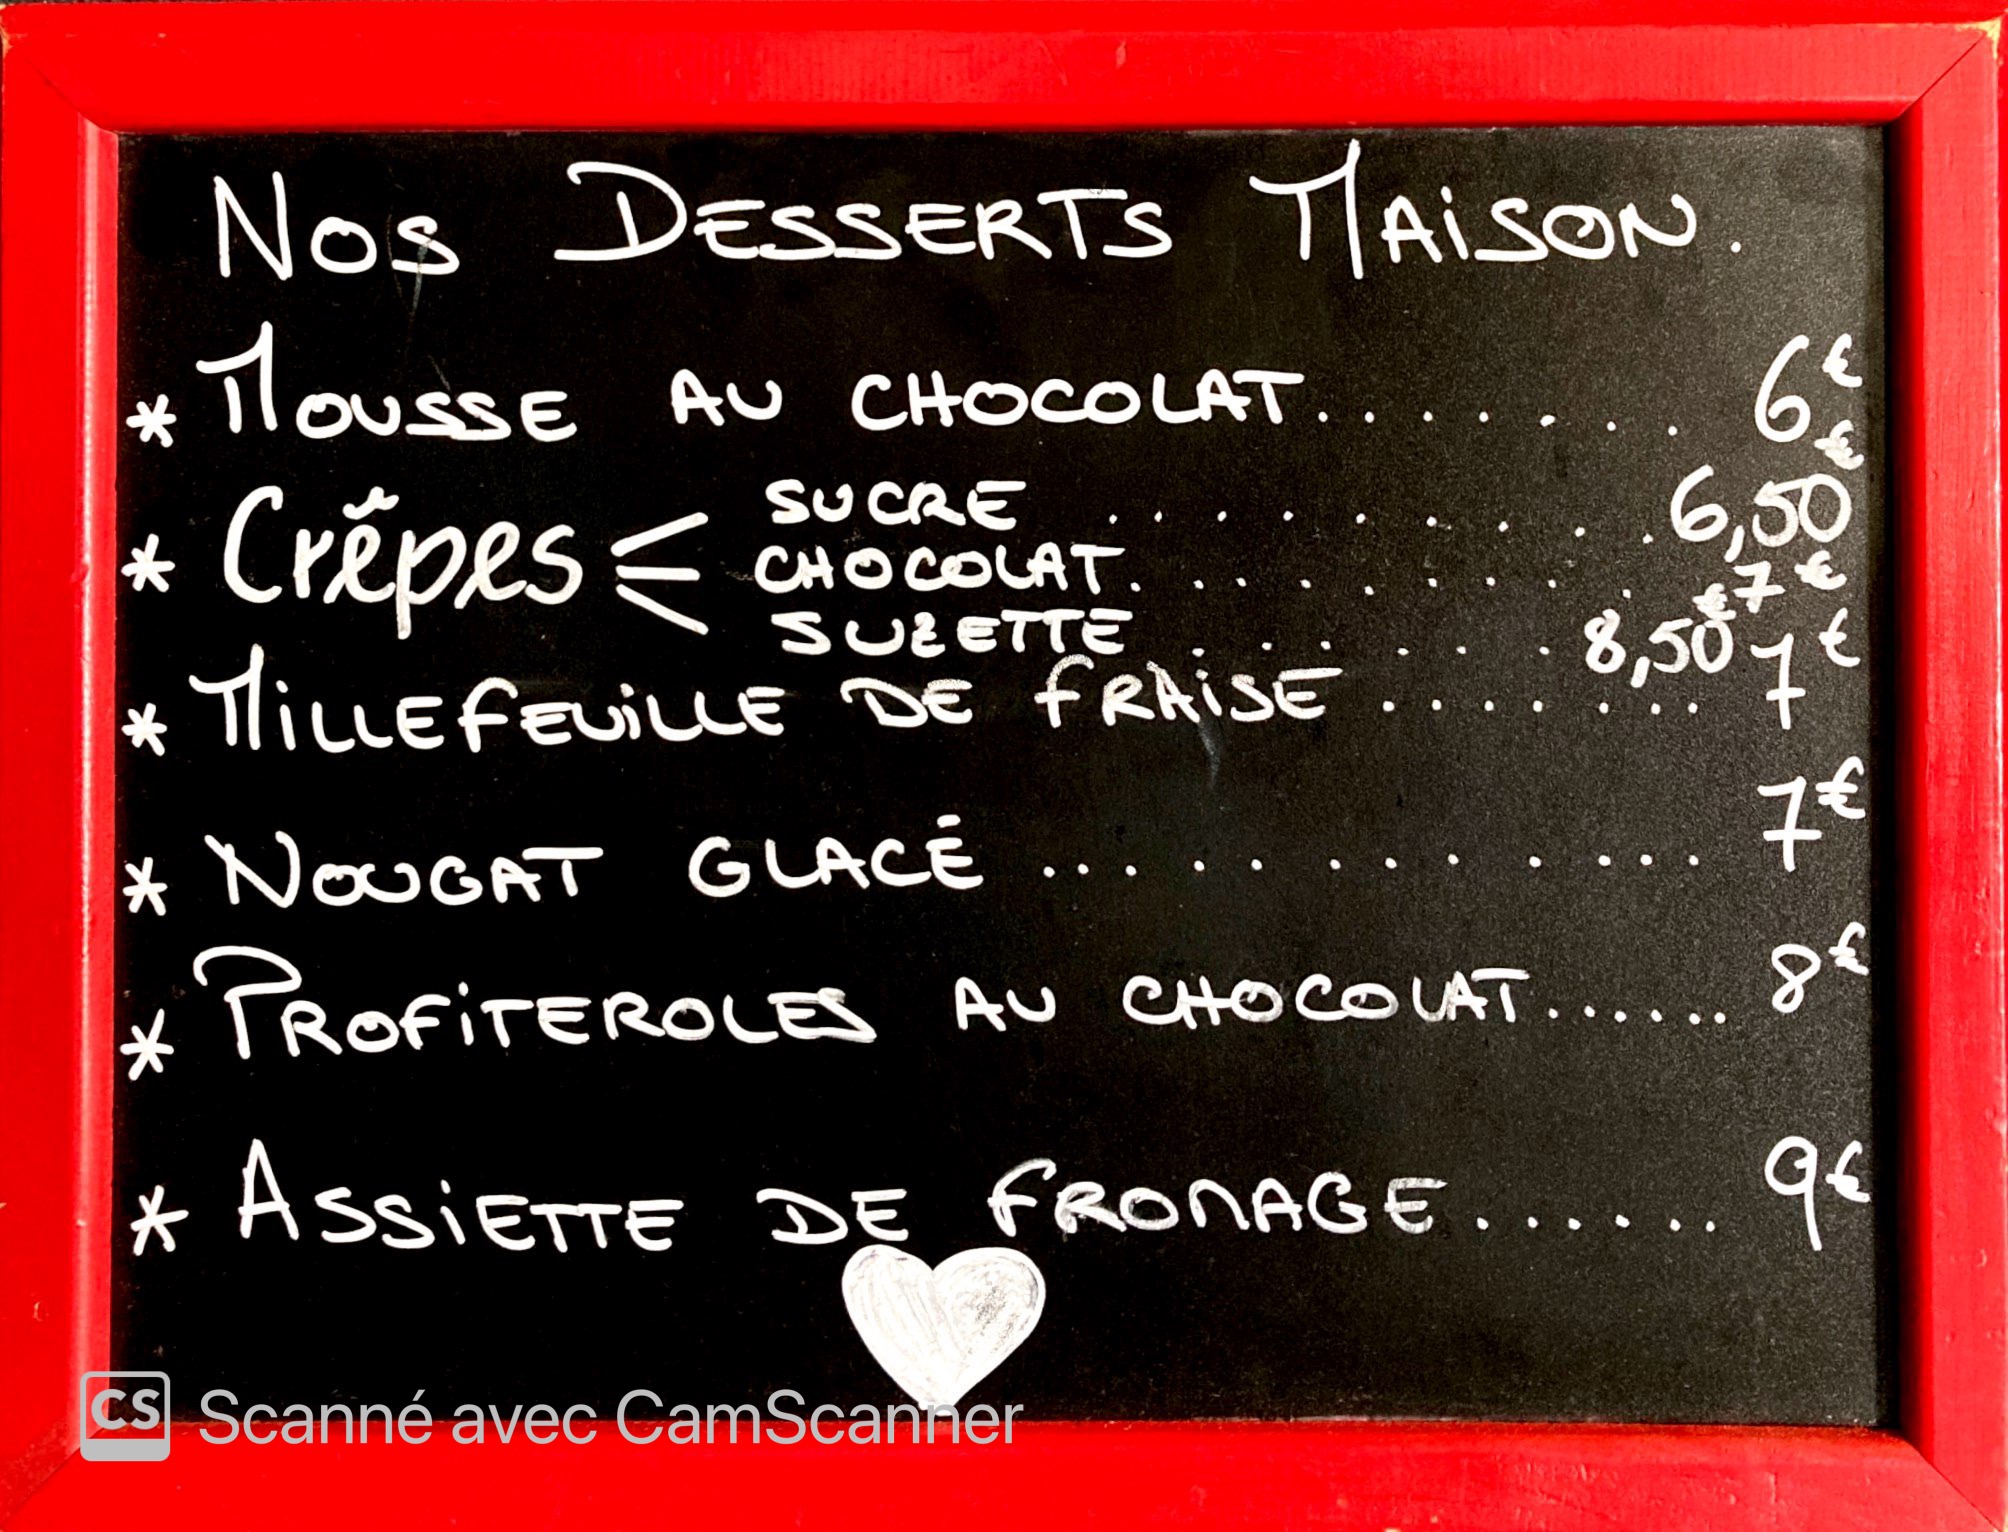 Nos DESSERTS MAiSON.
* MOUSSE AU CHOCOLAT........ 6€
* Crêpes SUCRE .......... 6,50€
CHOCOLAT.......... 7€
SUZETTE ....... 8,50€
* MiLLEFEUiLLE DE fRAiSE ........ 7€
* NOUGAT GLACÉ ............ 7€
* PROFiTEROLES AU CHOCOLAT...... 8€
* ASSiETTE DE FROMAGE....... 9€
CS Scanné avec CamScanner